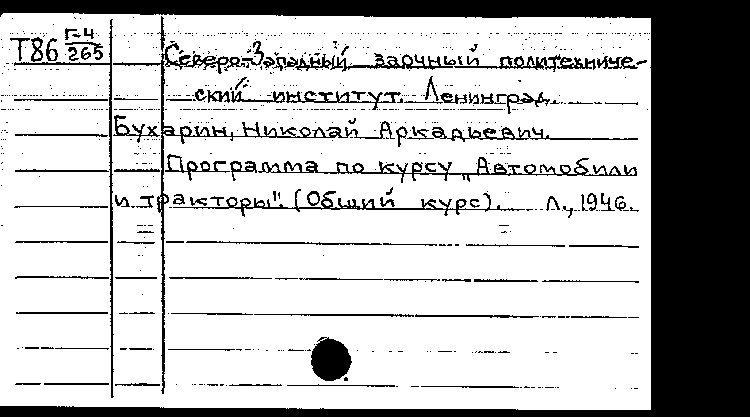 Т86 Г-4/265
Северо-Западный заочный политехниче-
ский институт. Ленинград.
Бухарин, Николай Аркадьевич.
Программа по курсу „Автомобили
и тракторы". (Общий курс). Л., 1946.